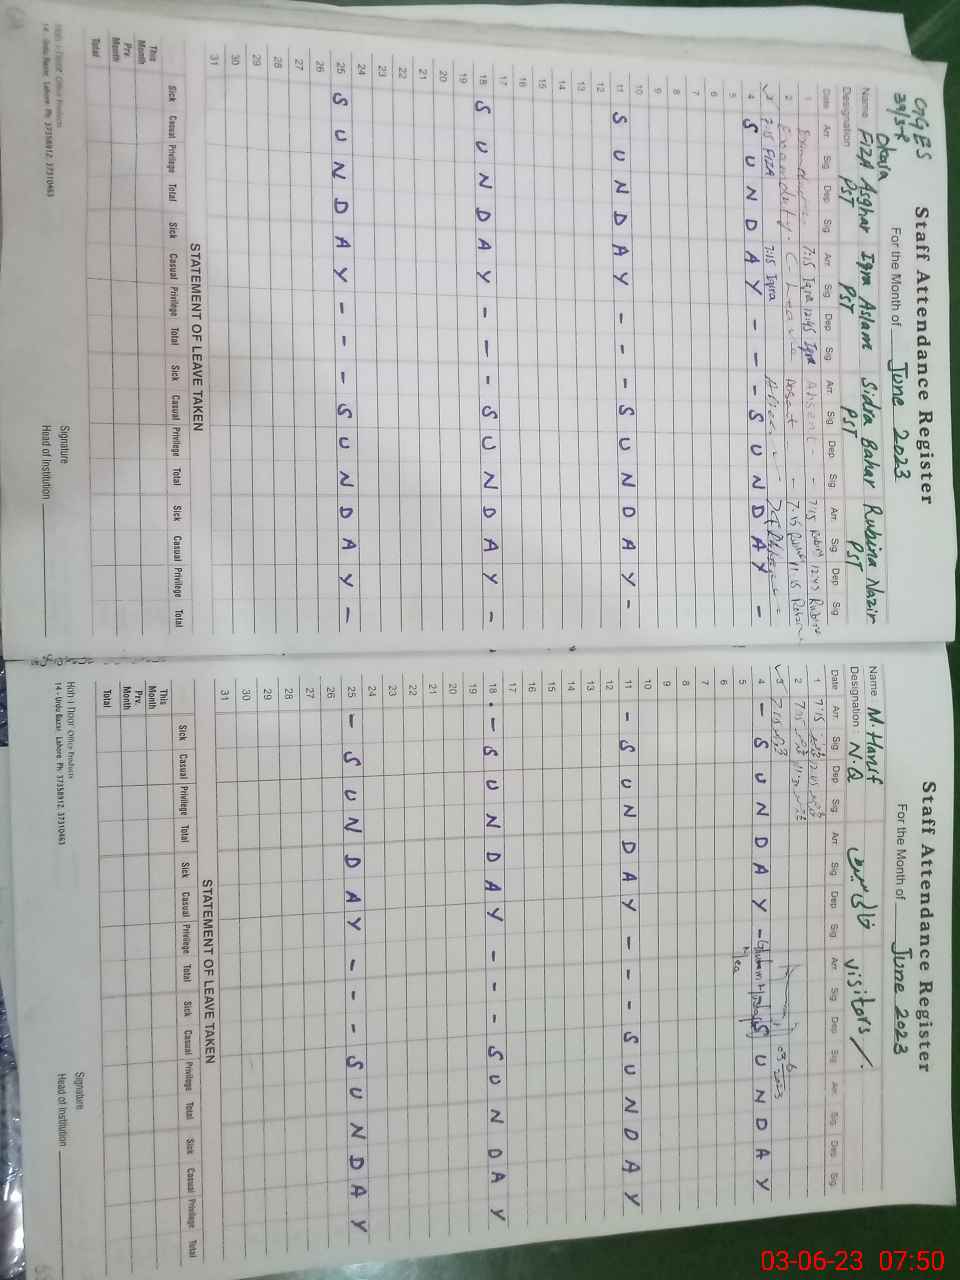 GGES
39/3-R
Okara
Staff Attendance Register
For the Month of June 2023
Name Fiza Asghar Iqra Aslam Sidra Bahar Rubina Nazir
Designation PST PST PST PST
Date Arr. Sig Dep Sig Arr. Sig Dep Sig Arr. Sig Dep Sig Arr. Sig Dep Sig
1 7:15 Iqra 12:45 Iqra Absent - - 7:15 Rubina 12:45 Rubina
2 C-Leave Absent - - 7:15 Rubina
3 7:15 FIZA 7:15 Iqra
4 S U N D A Y - - - S U N D A Y -
5
6
7
8
9
10
11 S U N D A Y - - - S U N D A Y -
12
13
14
15
16
17
18 S U N D A Y - - - S U N D A Y -
19
20
21
22
23
24
25 S U N D A Y - - - S U N D A Y -
26
27
28
29
30
31
STATEMENT OF LEAVE TAKEN
Sick Casual Privilege Total Sick Casual Privilege Total Sick Casual Privilege Total Sick Casual Privilege Total
This Month
Prv. Month
Total
Signature
Head of Institution
14 - Urdu Bazar, Lahore. Ph: 37358912, 37310463
Staff Attendance Register
For the Month of June 2023
Name M. Hanif visitors
Designation: N.Q
Date Arr. Sig Dep Sig Arr. Sig Dep Sig Arr. Sig Dep Sig Arr. Sig Dep Sig
1 7:15
2 7:15
3 7:15 03/6/2023
4 - S U N D A Y - S U N D A Y
5
6
7
8
9
10
11 - S U N D A Y - - - S U N D A Y
12
13
14
15
16
17
18 - S U N D A Y - - - S U N D A Y
19
20
21
22
23
24
25 - S U N D A Y - - - S U N D A Y
26
27
28
29
30
31
STATEMENT OF LEAVE TAKEN
Sick Casual Privilege Total Sick Casual Privilege Total Sick Casual Privilege Total Sick Casual Privilege Total
This Month
Prv. Month
Total
Signature
Head of Institution
Office Products
14 - Urdu Bazar, Lahore. Ph: 37358912, 37310463
03-06-23 07:50